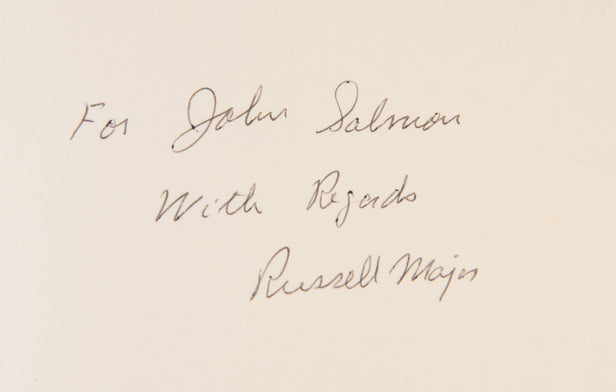 For John Salmon
With Regards
Russell Major